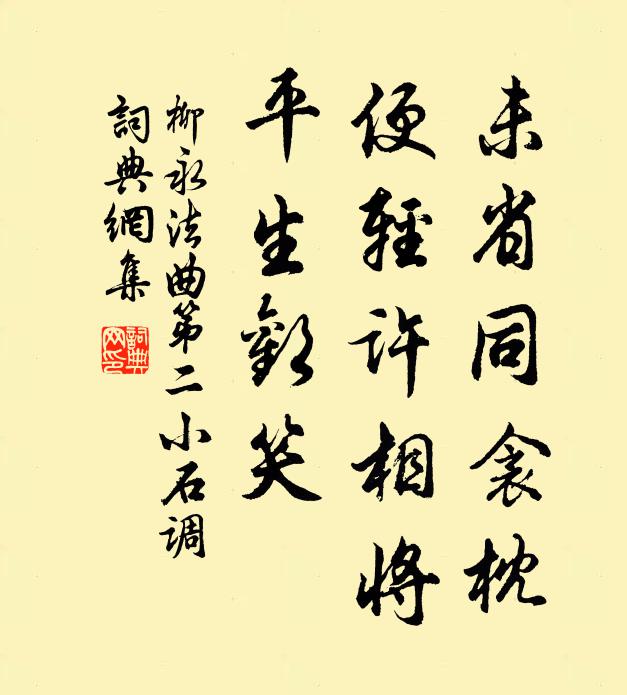 未省同衾枕
便輕許相將
平生歡笑
柳永法曲第二小石调
詞典網集
詞典
网印